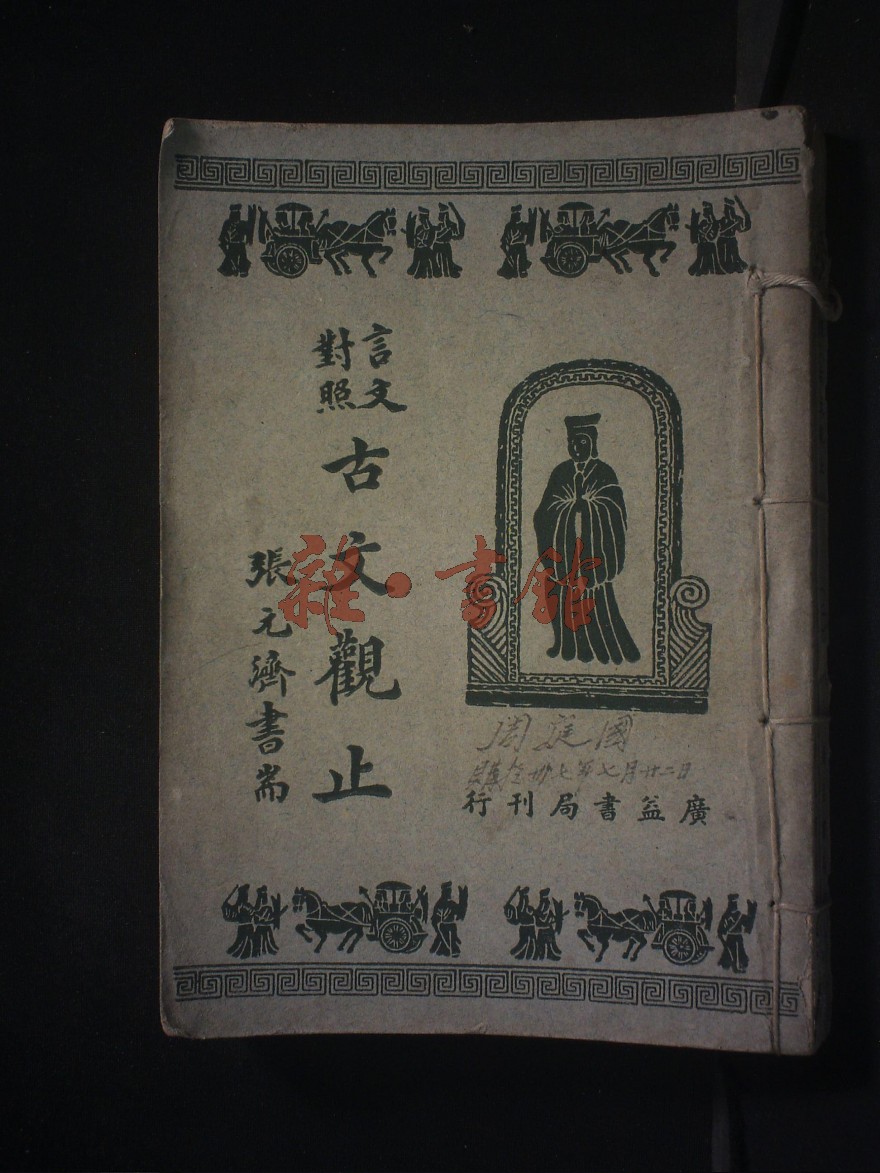 言文
對照
古文觀止
張元濟書耑
國庭周
購仝卅七年七月廿二日
廣益書局刊行
雜·書館